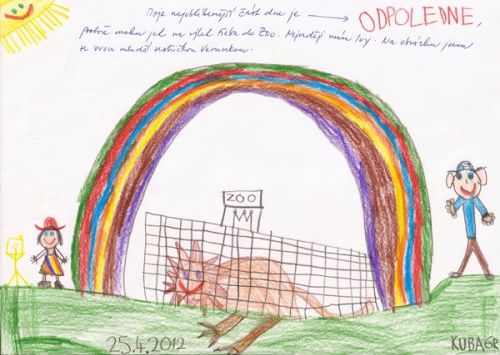 Moje nejoblíbenější část dne je → ODPOLEDNE,
protože mohu jet na výlet třeba do Zoo. Nejraději mám lvy. Na obrázku jsem
se svou mladší sestřičkou Verunkou.
ZOO
25.4.2012
KUBA 6R